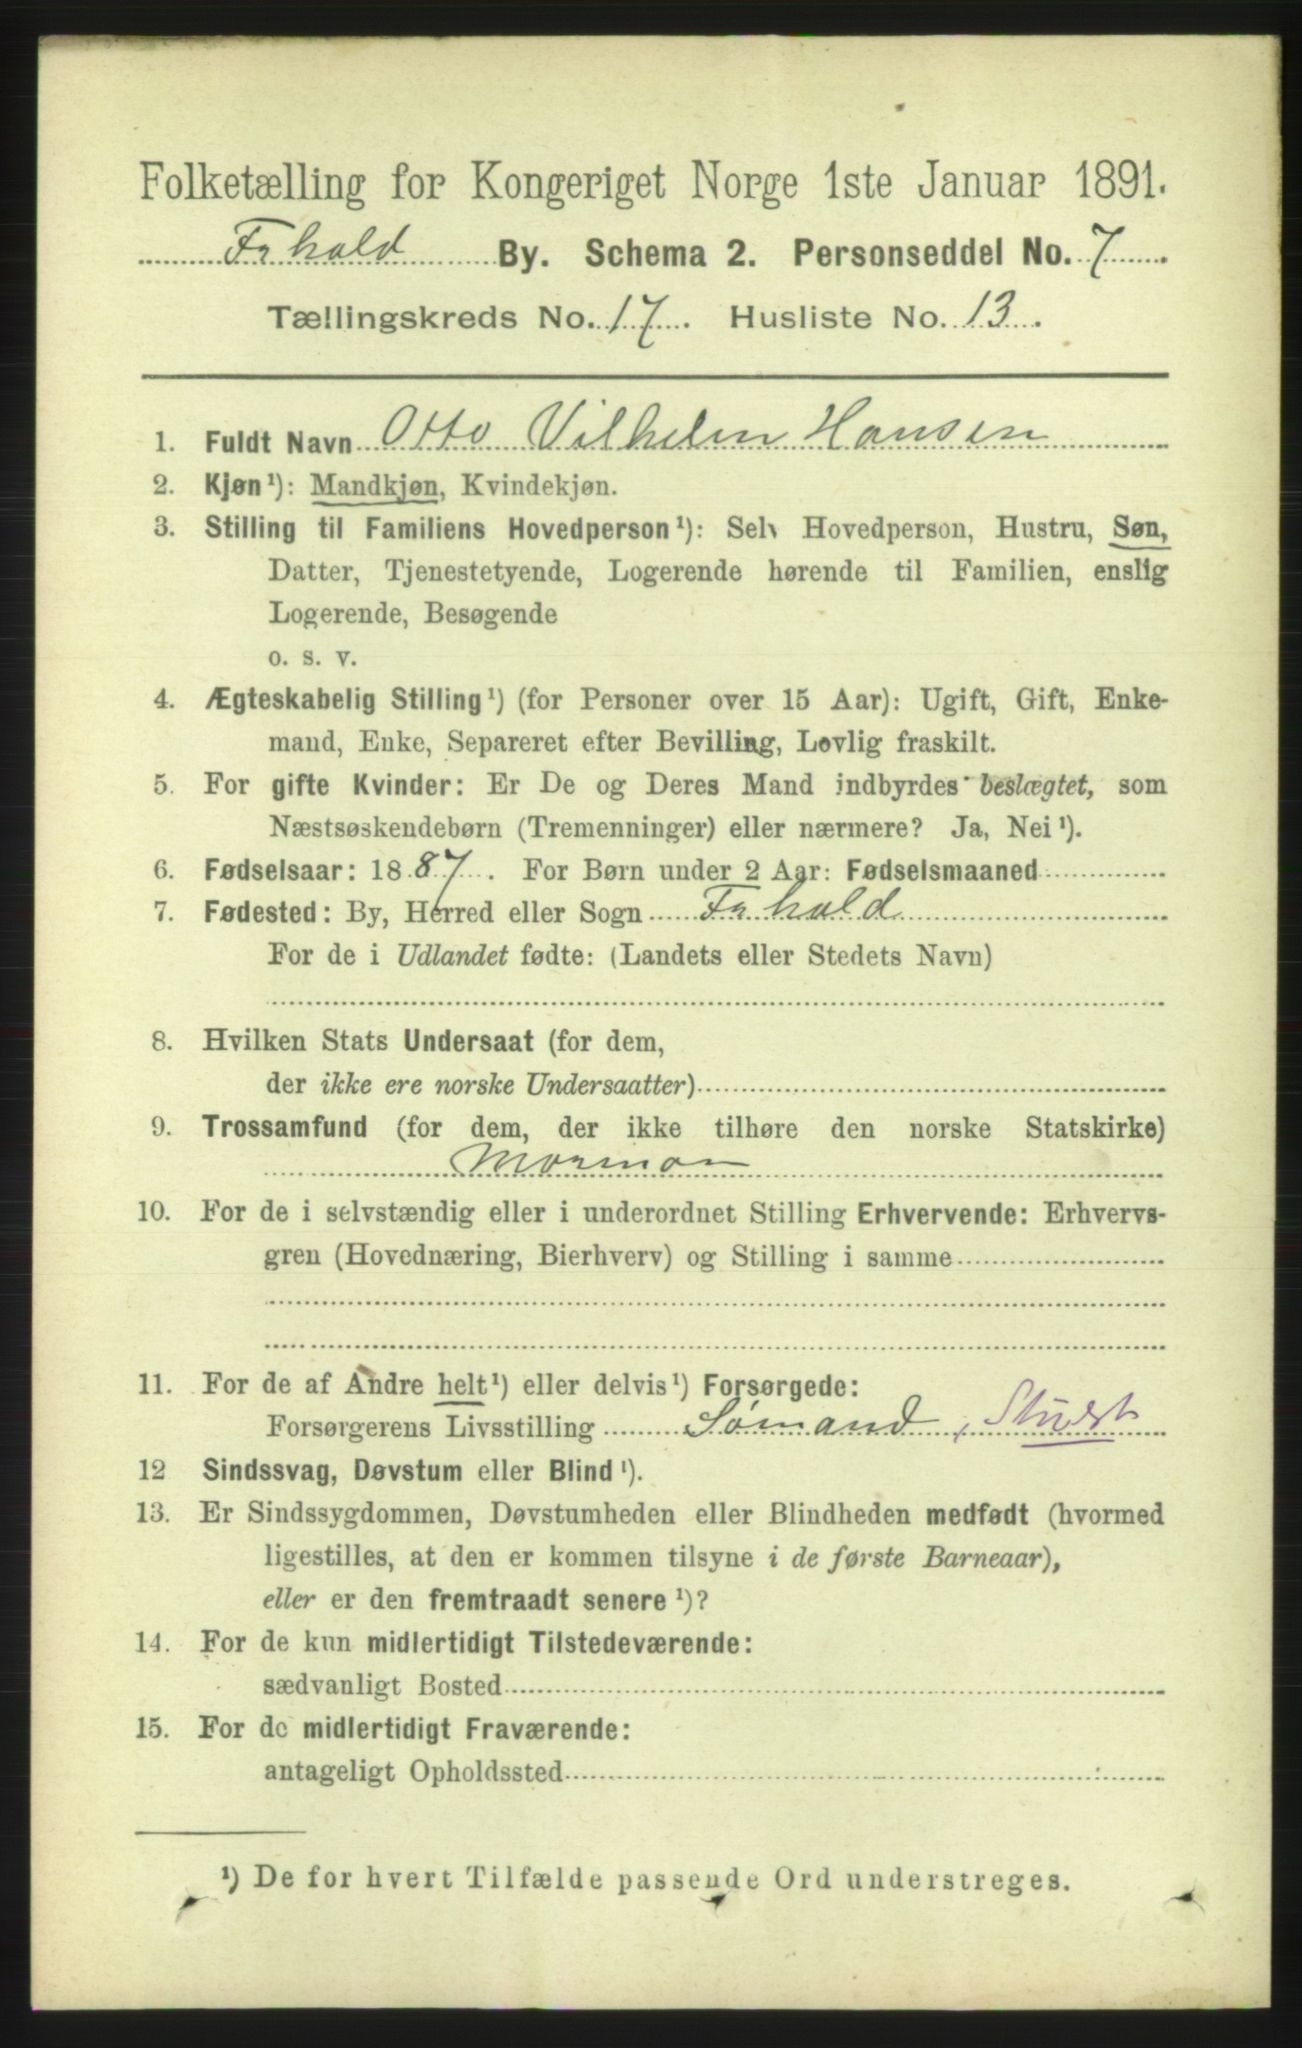 Folketælling for Kongeriget Norge 1ste Januar 1891.
Frhald By. Schema 2. Personseddel No. 7
Tællingskreds No. 17. Husliste No. 13.
1. Fuldt Navn Otto Vilhelm Hansen
2. Kjøn¹): Mandkjøn, Kvindekjøn.
3. Stilling til Familiens Hovedperson¹): Selv Hovedperson, Hustru, Søn,
Datter, Tjenestetyende, Logerende hørende til Familien, enslig
Logerende, Besøgende
o. s. v.
4. Ægteskabelig Stilling¹) (for Personer over 15 Aar): Ugift, Gift, Enke-
mand, Enke, Separeret efter Bevilling, Lovlig fraskilt.
5. For gifte Kvinder: Er De og Deres Mand indbyrdes beslægtet, som
Næstsøskendebørn (Tremenninger) eller nærmere? Ja, Nei¹).
6. Fødselsaar: 1887. For Børn under 2 Aar: Fødselsmaaned
7. Fødested: By, Herred eller Sogn Frhald
For de i Udlandet fødte: (Landets eller Stedets Navn)
8. Hvilken Stats Undersaat (for dem,
der ikke ere norske Undersaatter)
9. Trossamfund (for dem, der ikke tilhøre den norske Statskirke)
Mormon
10. For de i selvstændig eller i underordnet Stilling Erhvervende: Erhvervs-
gren (Hovednæring, Bierhverv) og Stilling i samme
11. For de af Andre helt¹) eller delvis¹) Forsørgede:
Forsørgerens Livsstilling Sømand,
12 Sindssvag, Døvstum eller Blind¹).
13. Er Sindssygdommen, Døvstumheden eller Blindheden medfødt (hvormed
ligestilles, at den er kommen tilsyne i de første Barneaar),
eller er den fremtraadt senere¹)?
14. For de kun midlertidigt Tilstedeværende:
sædvanligt Bosted
15. For de midlertidigt Fraværende:
antageligt Opholdssted
¹) De for hvert Tilfælde passende Ord understreges.